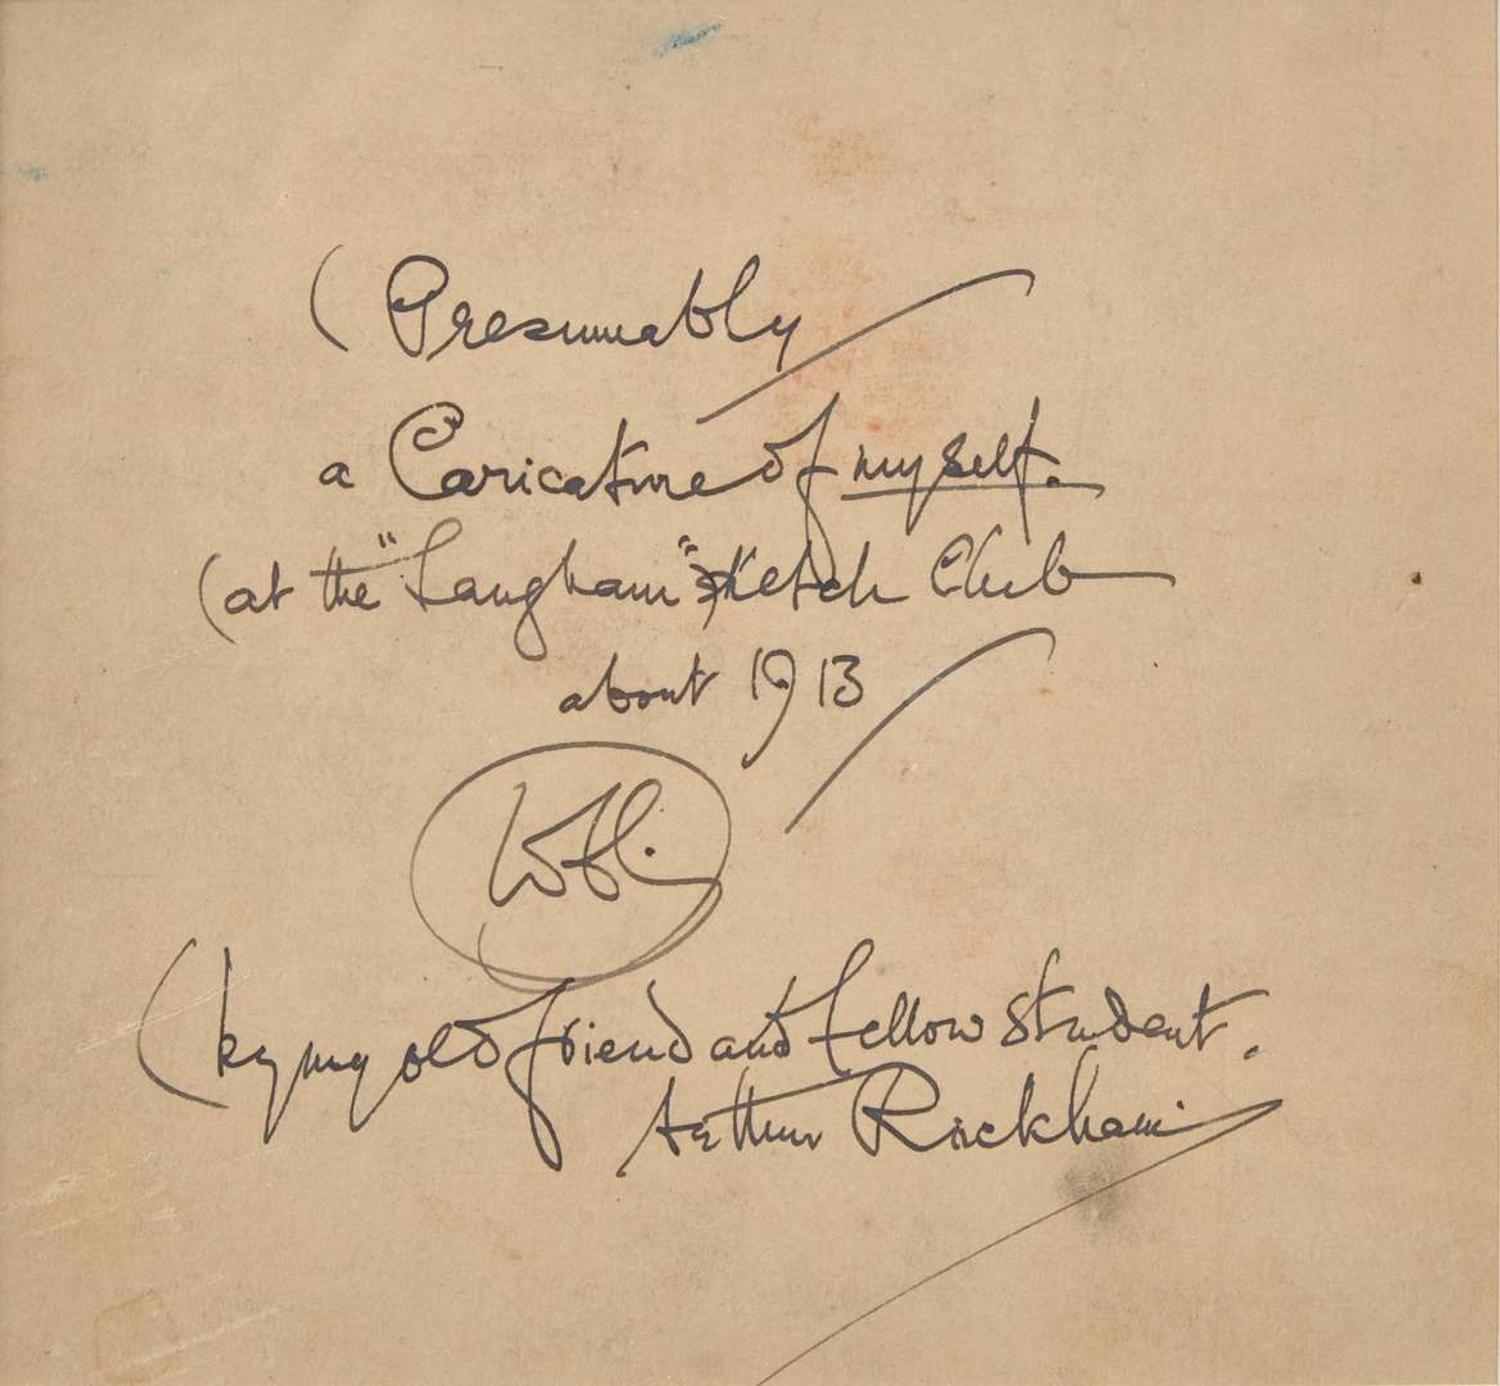 (Presumably
a Caricature of myself.
(at the "Langham" sketch Club
about 1913
(by my old friend and fellow student.
Arthur Rackham